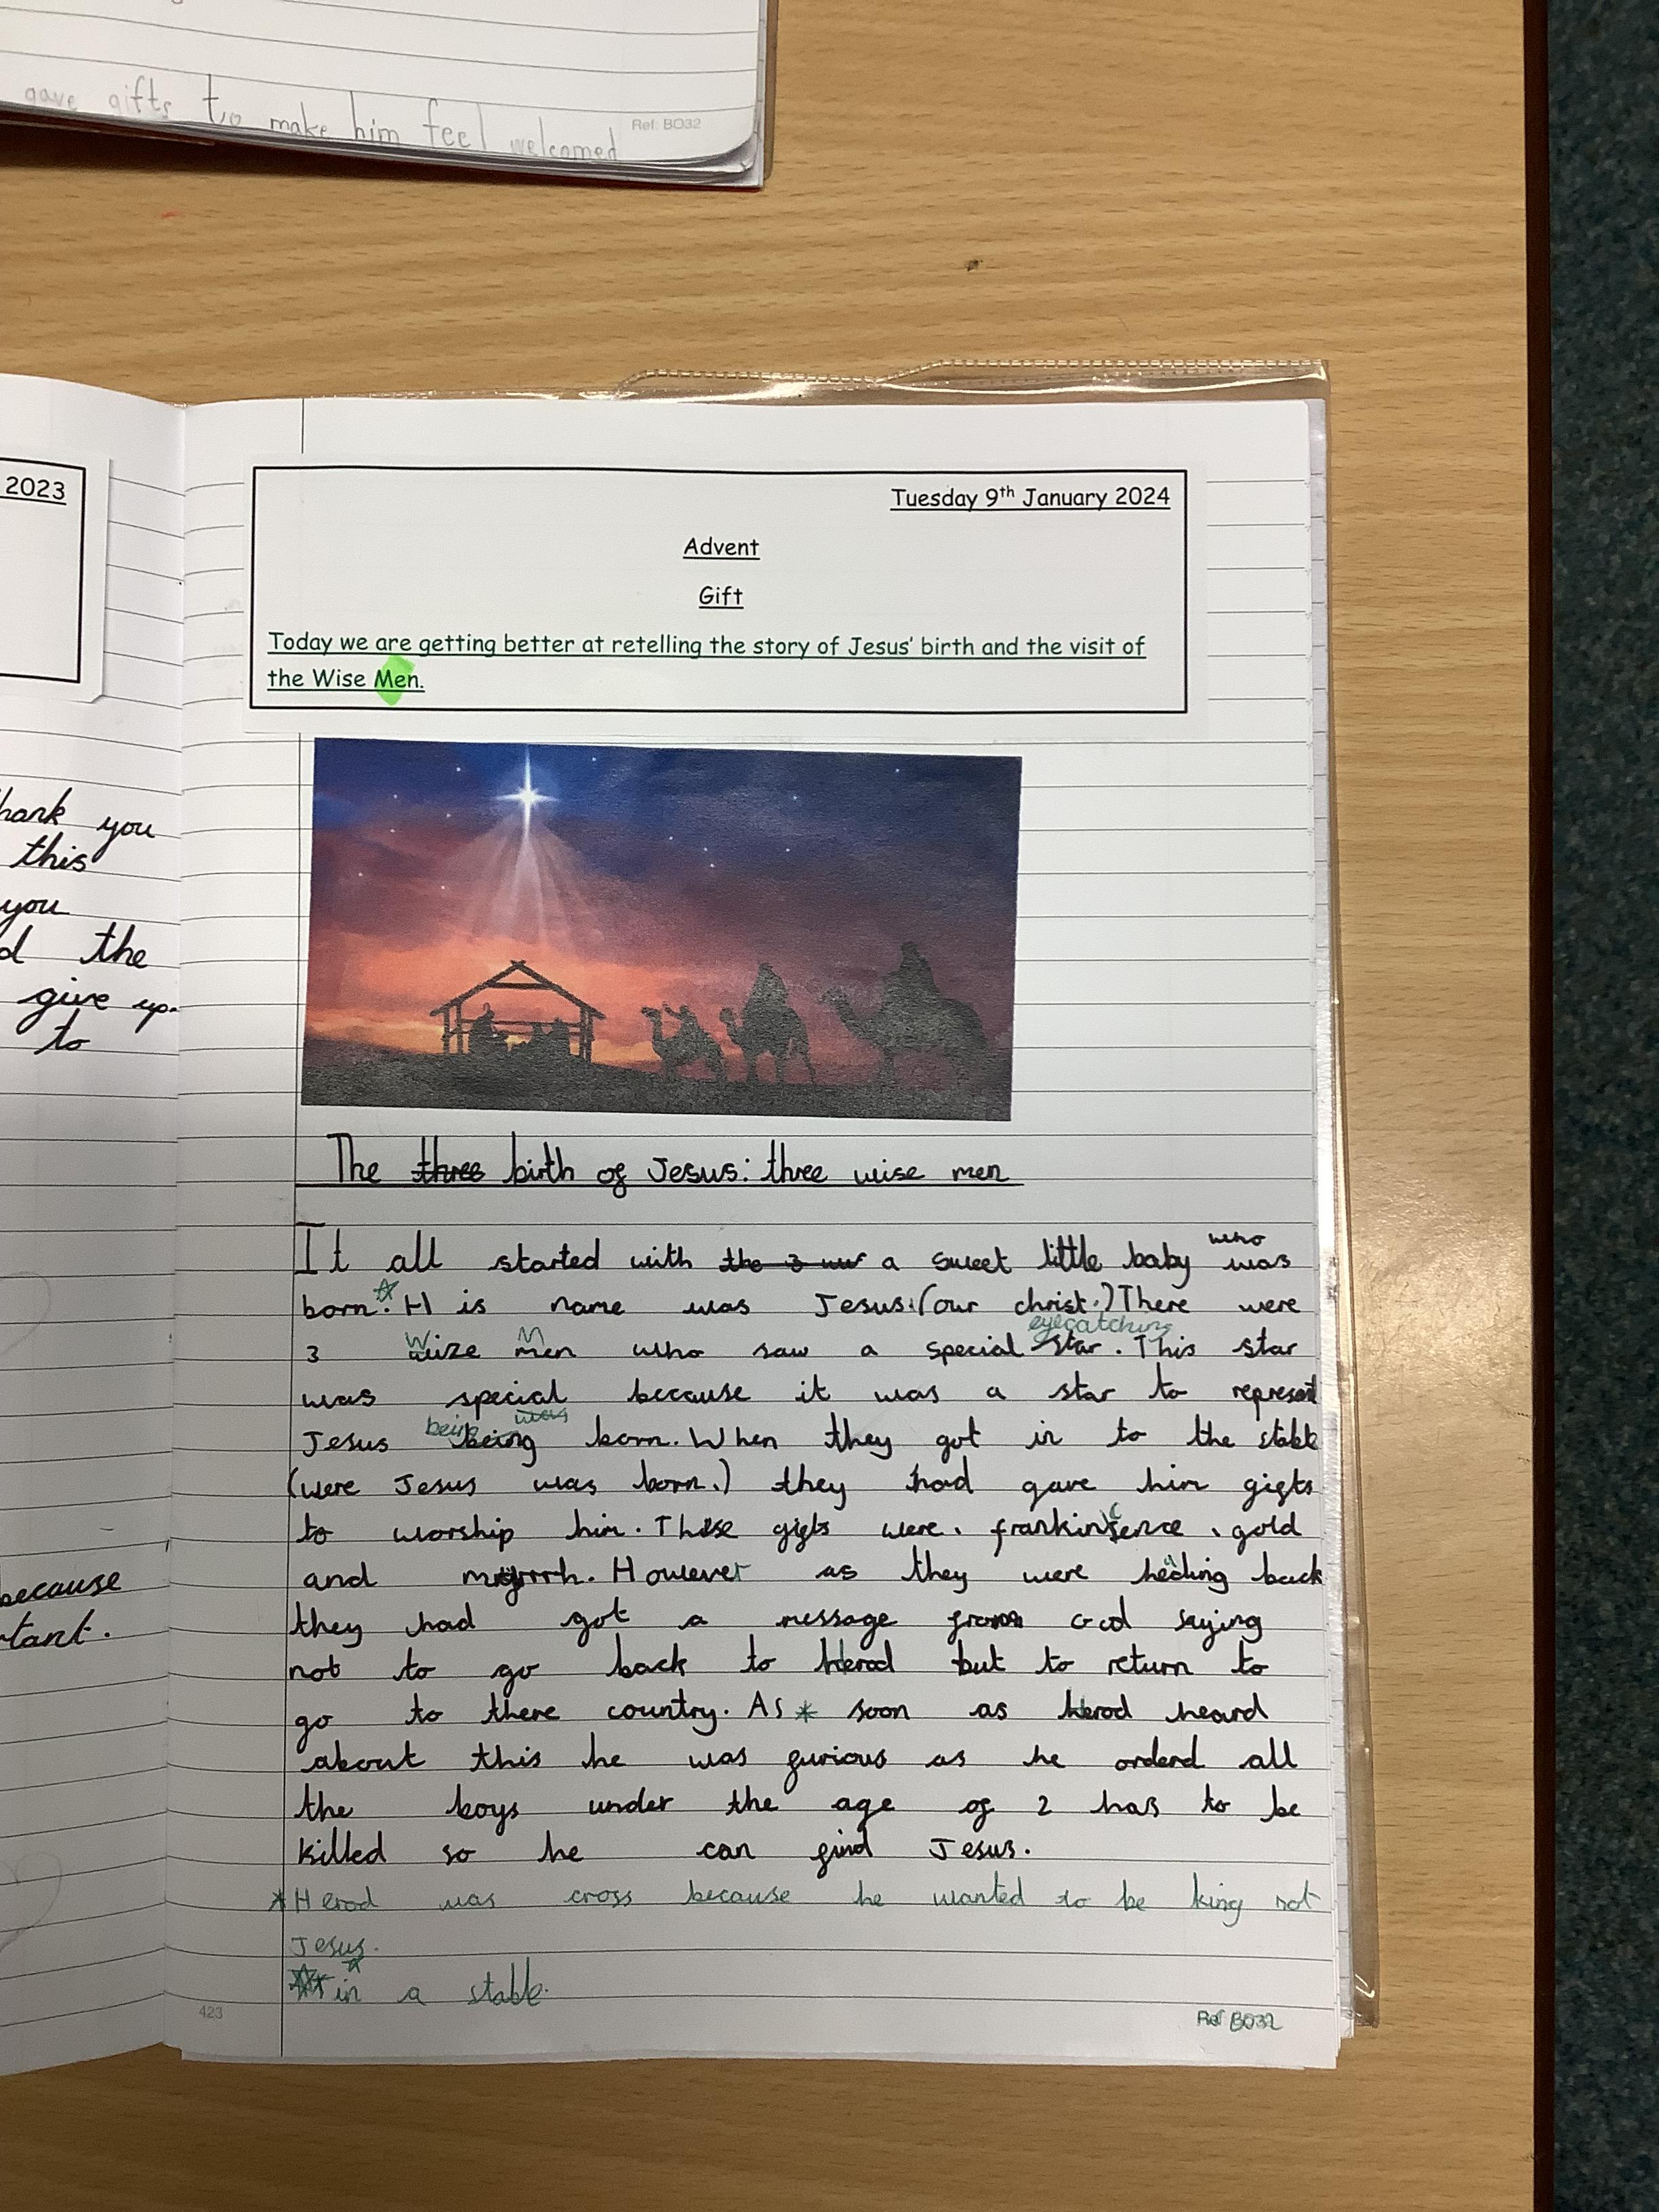 gave gifts to make him feel welcomed
Ref: BO32
2023
hank you
this
you
d the
give up.
to
because
tant.
Tuesday 9th January 2024
Advent
Gift
Today we are getting better at retelling the story of Jesus' birth and the visit of
the Wise Men.
The three birth of Jesus: three wise men
who
It all started with the 3 a sweet little baby was
born. His name was Jesus.(our christ.)There were
eyecatching
3 Wize Men who saw a special star. This star
was special because it was a star to represent
was
Jesus being born. When they got in to the stable
(were Jesus was born.) they had gave him gifts
to worship him. These gifts were, frankincence, gold
and myrrh. However as they were heading back
they had got a message from God saying
not to go back to Herod but to return to
go to there country. As * soon as Herod heard
about this he was furious as he orderd all
the boys under the age of 2 has to be
killed so he can find Jesus.
*Herod was cross because he wanted to be king not
Jesus.
in a stable.
423
Ref BO32